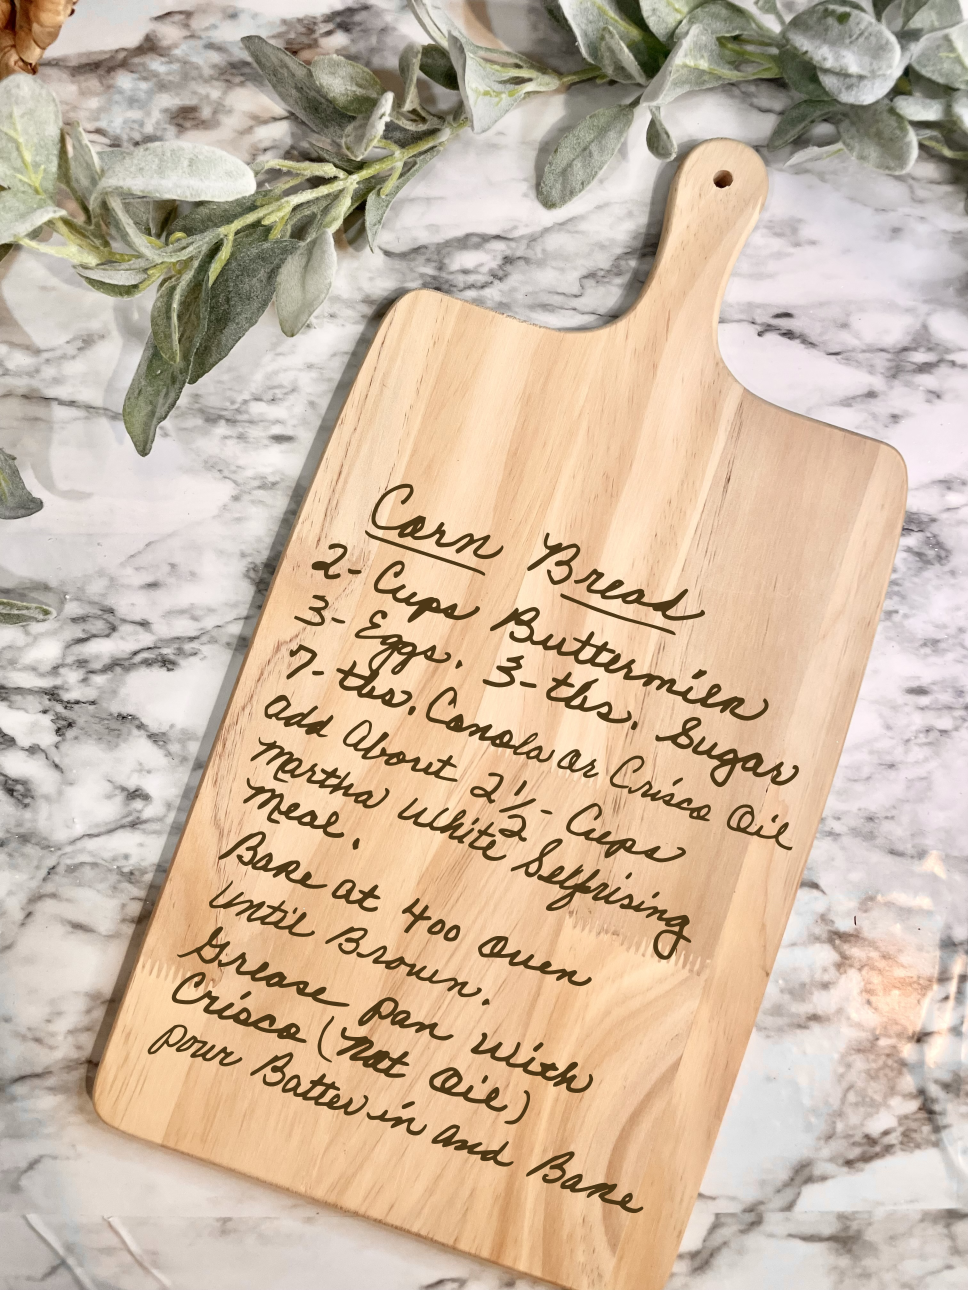 Corn Bread
2- Cups Buttermilk
3- Eggs. 3-tbs. Sugar
7-tbs. Canola or Crisco Oil
add About 2½- Cups
Martha White Selfrising
Meal.
Bake at 400 Oven
until Brown.
Grease pan with
Crisco (not Oil)
pour Batter in and Bake